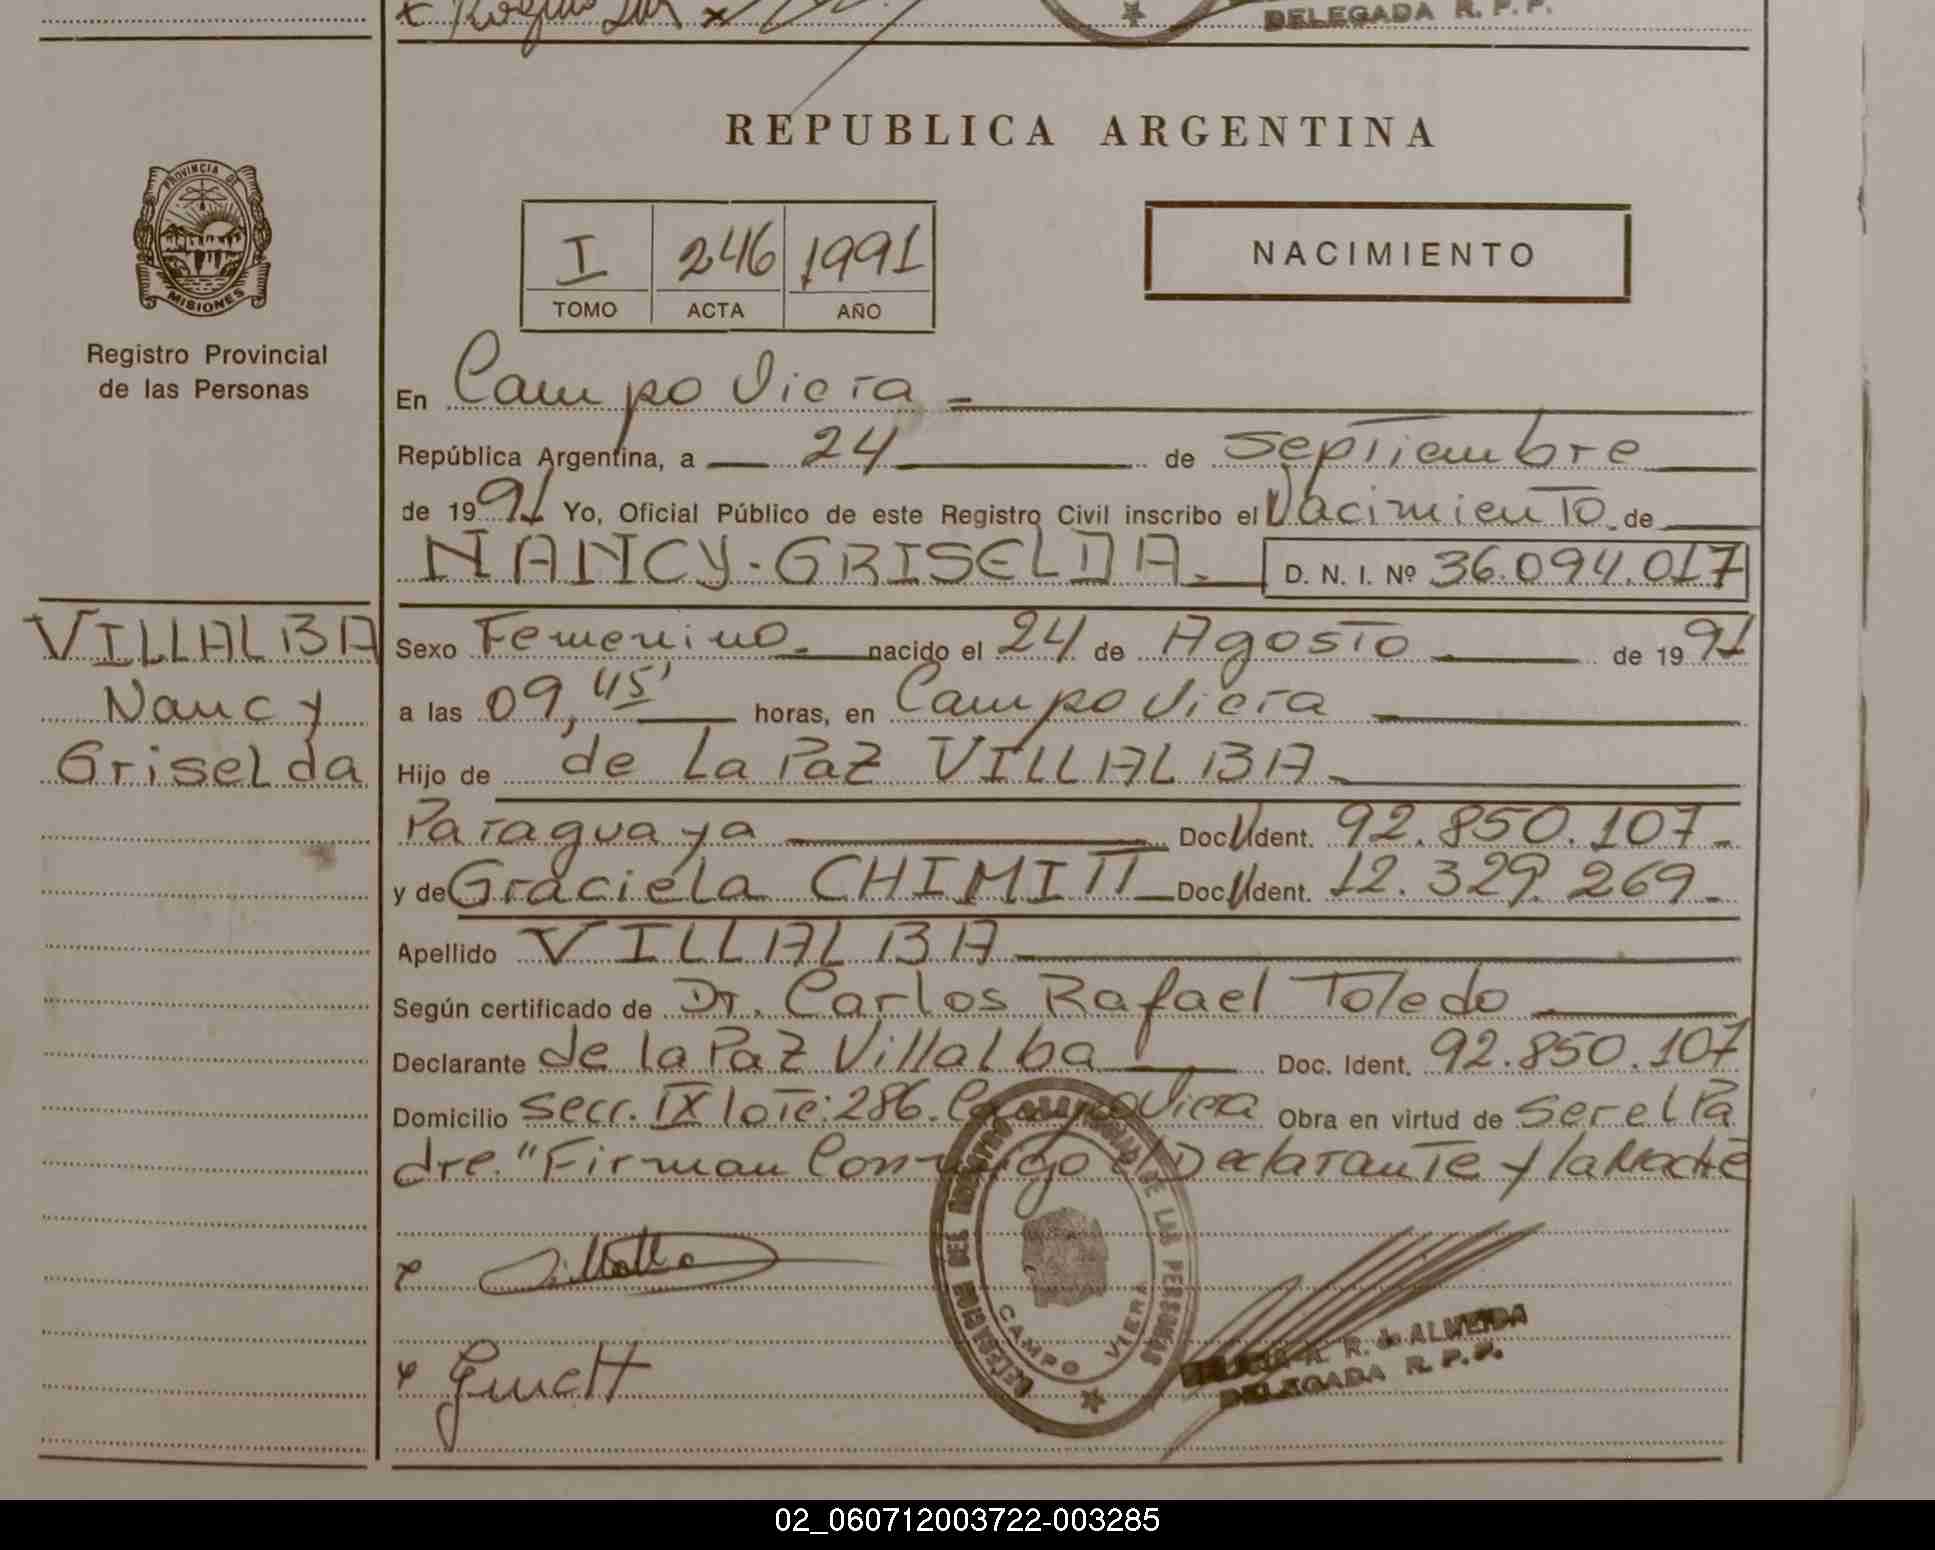 DELEGADA R. P. P.
REPUBLICA ARGENTINA
PROVINCIA DE
MISIONES
Registro Provincial
de las Personas
I 246 1991
TOMO ACTA AÑO
NACIMIENTO
En Campo Viera
República Argentina, a 24 de Septiembre
de 1991 Yo, Oficial Público de este Registro Civil inscribo el Nacimiento de
NANCY. GRISELDA. D. N. I. Nº 36.094.017
VILLALBA
Nancy
Griselda
Sexo Femenino. nacido el 24 de Agosto de 1991
a las 09,45' horas, en Campo Viera
Hijo de de La Paz VILLALBA
Paraguaya Doc. Ident. 92.850.107.-
y de Graciela CHIMITT Doc. Ident. 12.329.269.-
Apellido VILLALBA
Según certificado de Dr. Carlos Rafael Toledo
Declarante de la Paz Villalba Doc. Ident. 92.850.107
Domicilio secc. IX lote: 286. Campo Viera Obra en virtud de ser el Pa
dre. "Firman Conmigo el Declarante y la Madre
DELEGACION DEL REGISTRO PROVINCIAL DE LAS PERSONAS
CAMPO VIERA
R. de ALMEIDA
DELEGADA R. P. P.
02_060712003722-003285